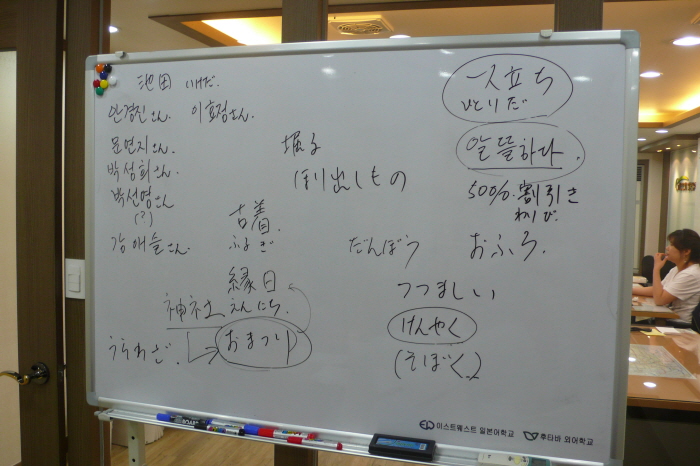 池田 いけだ.
안경진さん. 이효정さん.
문연지さん.
박성희さん.
박선영さん
(?)
강애슬さん.
掘る
ほり出しもの
古着.
ふるぎ
縁日
神社 えんにち.
おまつり
うらわざ.
一人立ち
ひとりだ
알뜰하다.
50%. 割引き
わりび.
だんぼう
おふろ.
つつましい
けんやく
(そぼく.)
이스트웨스트 일본어학교
후타바 외어학교